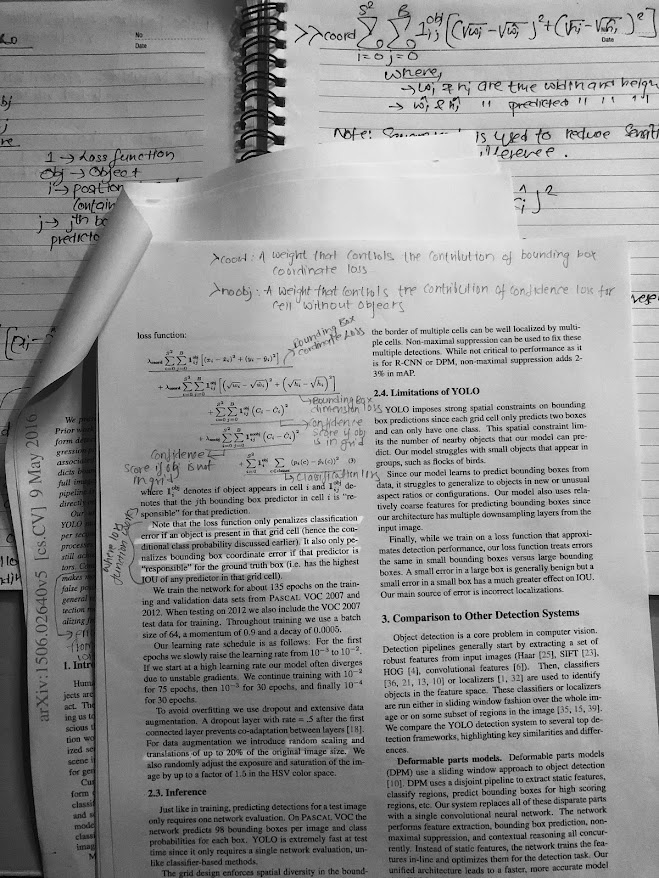 No
Date
1 → Loss function
Obj → Object
i → position
j → jth bo
predicto
λcoord Σ Σ 1ᵢⱼ^obj [(√wᵢ - √ŵᵢ)² + (√hᵢ - √ĥᵢ)²]
S²
B
i = 0 j = 0
Date
where,
→ wᵢ & hᵢ are the width and heigh
→ ŵᵢ & ĥᵢ " predicted " " "
Note:
is used to reduce
ifference.
λcoord : A weight that controls the contribution of bounding box
coordinate loss
λnoobj : A weight that controls the contribution of confidence loss for
cell without objects
arXiv:1506.02640v5 [cs.CV] 9 May 2016
1. Intr
loss function:
Bounding Box
Coordinate Loss
λcoord Σ Σ 1ᵢⱼ^obj [(xᵢ − x̂ᵢ)² + (yᵢ − ŷᵢ)²]
+ λcoord Σ Σ 1ᵢⱼ^obj [(√wᵢ − √ŵᵢ)² + (√hᵢ − √ĥᵢ)²]
Bounding Box
dimension loss
+ Σ Σ 1ᵢⱼ^obj (Cᵢ − Ĉᵢ)²
Confidence
score if obj
is in grid
+ λnoobj Σ Σ 1ᵢⱼ^noobj (Cᵢ − Ĉᵢ)²
Confidence
score if obj is not
in grid
+ Σ 1ᵢ^obj Σ (pᵢ(c) − p̂ᵢ(c))² (3)
Classification loss
where 1ᵢ^obj denotes if object appears in cell i and 1ᵢⱼ^obj de-
notes that the jth bounding box predictor in cell i is "re-
sponsible" for that prediction.
Note that the loss function only penalizes classification
error if an object is present in that grid cell (hence the con-
ditional class probability discussed earlier). It also only pe-
nalizes bounding box coordinate error if that predictor is
"responsible" for the ground truth box (i.e. has the highest
IOU of any predictor in that grid cell).
We train the network for about 135 epochs on the train-
ing and validation data sets from PASCAL VOC 2007 and
2012. When testing on 2012 we also include the VOC 2007
test data for training. Throughout training we use a batch
size of 64, a momentum of 0.9 and a decay of 0.0005.
Our learning rate schedule is as follows: For the first
epochs we slowly raise the learning rate from 10⁻³ to 10⁻².
If we start at a high learning rate our model often diverges
due to unstable gradients. We continue training with 10⁻²
for 75 epochs, then 10⁻³ for 30 epochs, and finally 10⁻⁴
for 30 epochs.
To avoid overfitting we use dropout and extensive data
augmentation. A dropout layer with rate = .5 after the first
connected layer prevents co-adaptation between layers [18].
For data augmentation we introduce random scaling and
translations of up to 20% of the original image size. We
also randomly adjust the exposure and saturation of the im-
age by up to a factor of 1.5 in the HSV color space.
2.3. Inference
Just like in training, predicting detections for a test image
only requires one network evaluation. On PASCAL VOC the
network predicts 98 bounding boxes per image and class
probabilities for each box. YOLO is extremely fast at test
time since it only requires a single network evaluation, un-
like classifier-based methods.
The grid design enforces spatial diversity in the bound-
the border of multiple cells can be well localized by multi-
ple cells. Non-maximal suppression can be used to fix these
multiple detections. While not critical to performance as it
is for R-CNN or DPM, non-maximal suppression adds 2-
3% in mAP.
2.4. Limitations of YOLO
YOLO imposes strong spatial constraints on bounding
box predictions since each grid cell only predicts two boxes
and can only have one class. This spatial constraint lim-
its the number of nearby objects that our model can pre-
dict. Our model struggles with small objects that appear in
groups, such as flocks of birds.
Since our model learns to predict bounding boxes from
data, it struggles to generalize to objects in new or unusual
aspect ratios or configurations. Our model also uses rela-
tively coarse features for predicting bounding boxes since
our architecture has multiple downsampling layers from the
input image.
Finally, while we train on a loss function that approxi-
mates detection performance, our loss function treats errors
the same in small bounding boxes versus large bounding
boxes. A small error in a large box is generally benign but a
small error in a small box has a much greater effect on IOU.
Our main source of error is incorrect localizations.
3. Comparison to Other Detection Systems
Object detection is a core problem in computer vision.
Detection pipelines generally start by extracting a set of
robust features from input images (Haar [25], SIFT [23],
HOG [4], convolutional features [6]). Then, classifiers
[36, 21, 13, 10] or localizers [1, 32] are used to identify
objects in the feature space. These classifiers or localizers
are run either in sliding window fashion over the whole im-
age or on some subset of regions in the image [35, 15, 39].
We compare the YOLO detection system to several top de-
tection frameworks, highlighting key similarities and differ-
ences.
Deformable parts models. Deformable parts models
(DPM) use a sliding window approach to object detection
[10]. DPM uses a disjoint pipeline to extract static features,
classify regions, predict bounding boxes for high scoring
regions, etc. Our system replaces all of these disparate parts
with a single convolutional neural network. The network
performs feature extraction, bounding box prediction, non-
maximal suppression, and contextual reasoning all concur-
rently. Instead of static features, the network trains the fea-
tures in-line and optimizes them for the detection task. Our
unified architecture leads to a faster, more accurate model